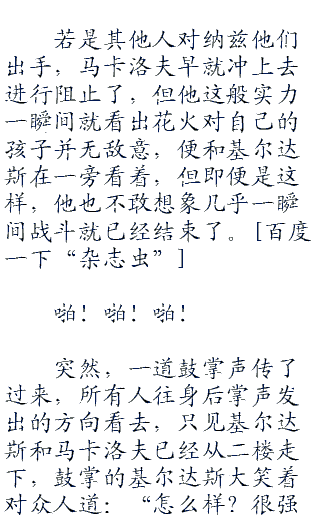 若是其他人对纳兹他们
出手，马卡洛夫早就冲上去
进行阻止了，但他这般实力
一瞬间就看出花火对自己的
孩子并无敌意，便和基尔达
斯在一旁看着，但即便是这
样，他也不敢想象几乎一瞬
间战斗就已经结束了。[百度
一下“杂志虫”]
啪！啪！啪！
突然，一道鼓掌声传了
过来，所有人往身后掌声发
出的方向看去，只见基尔达
斯和马卡洛夫已经从二楼走
下，鼓掌的基尔达斯大笑着
对众人道：“怎么样？很强